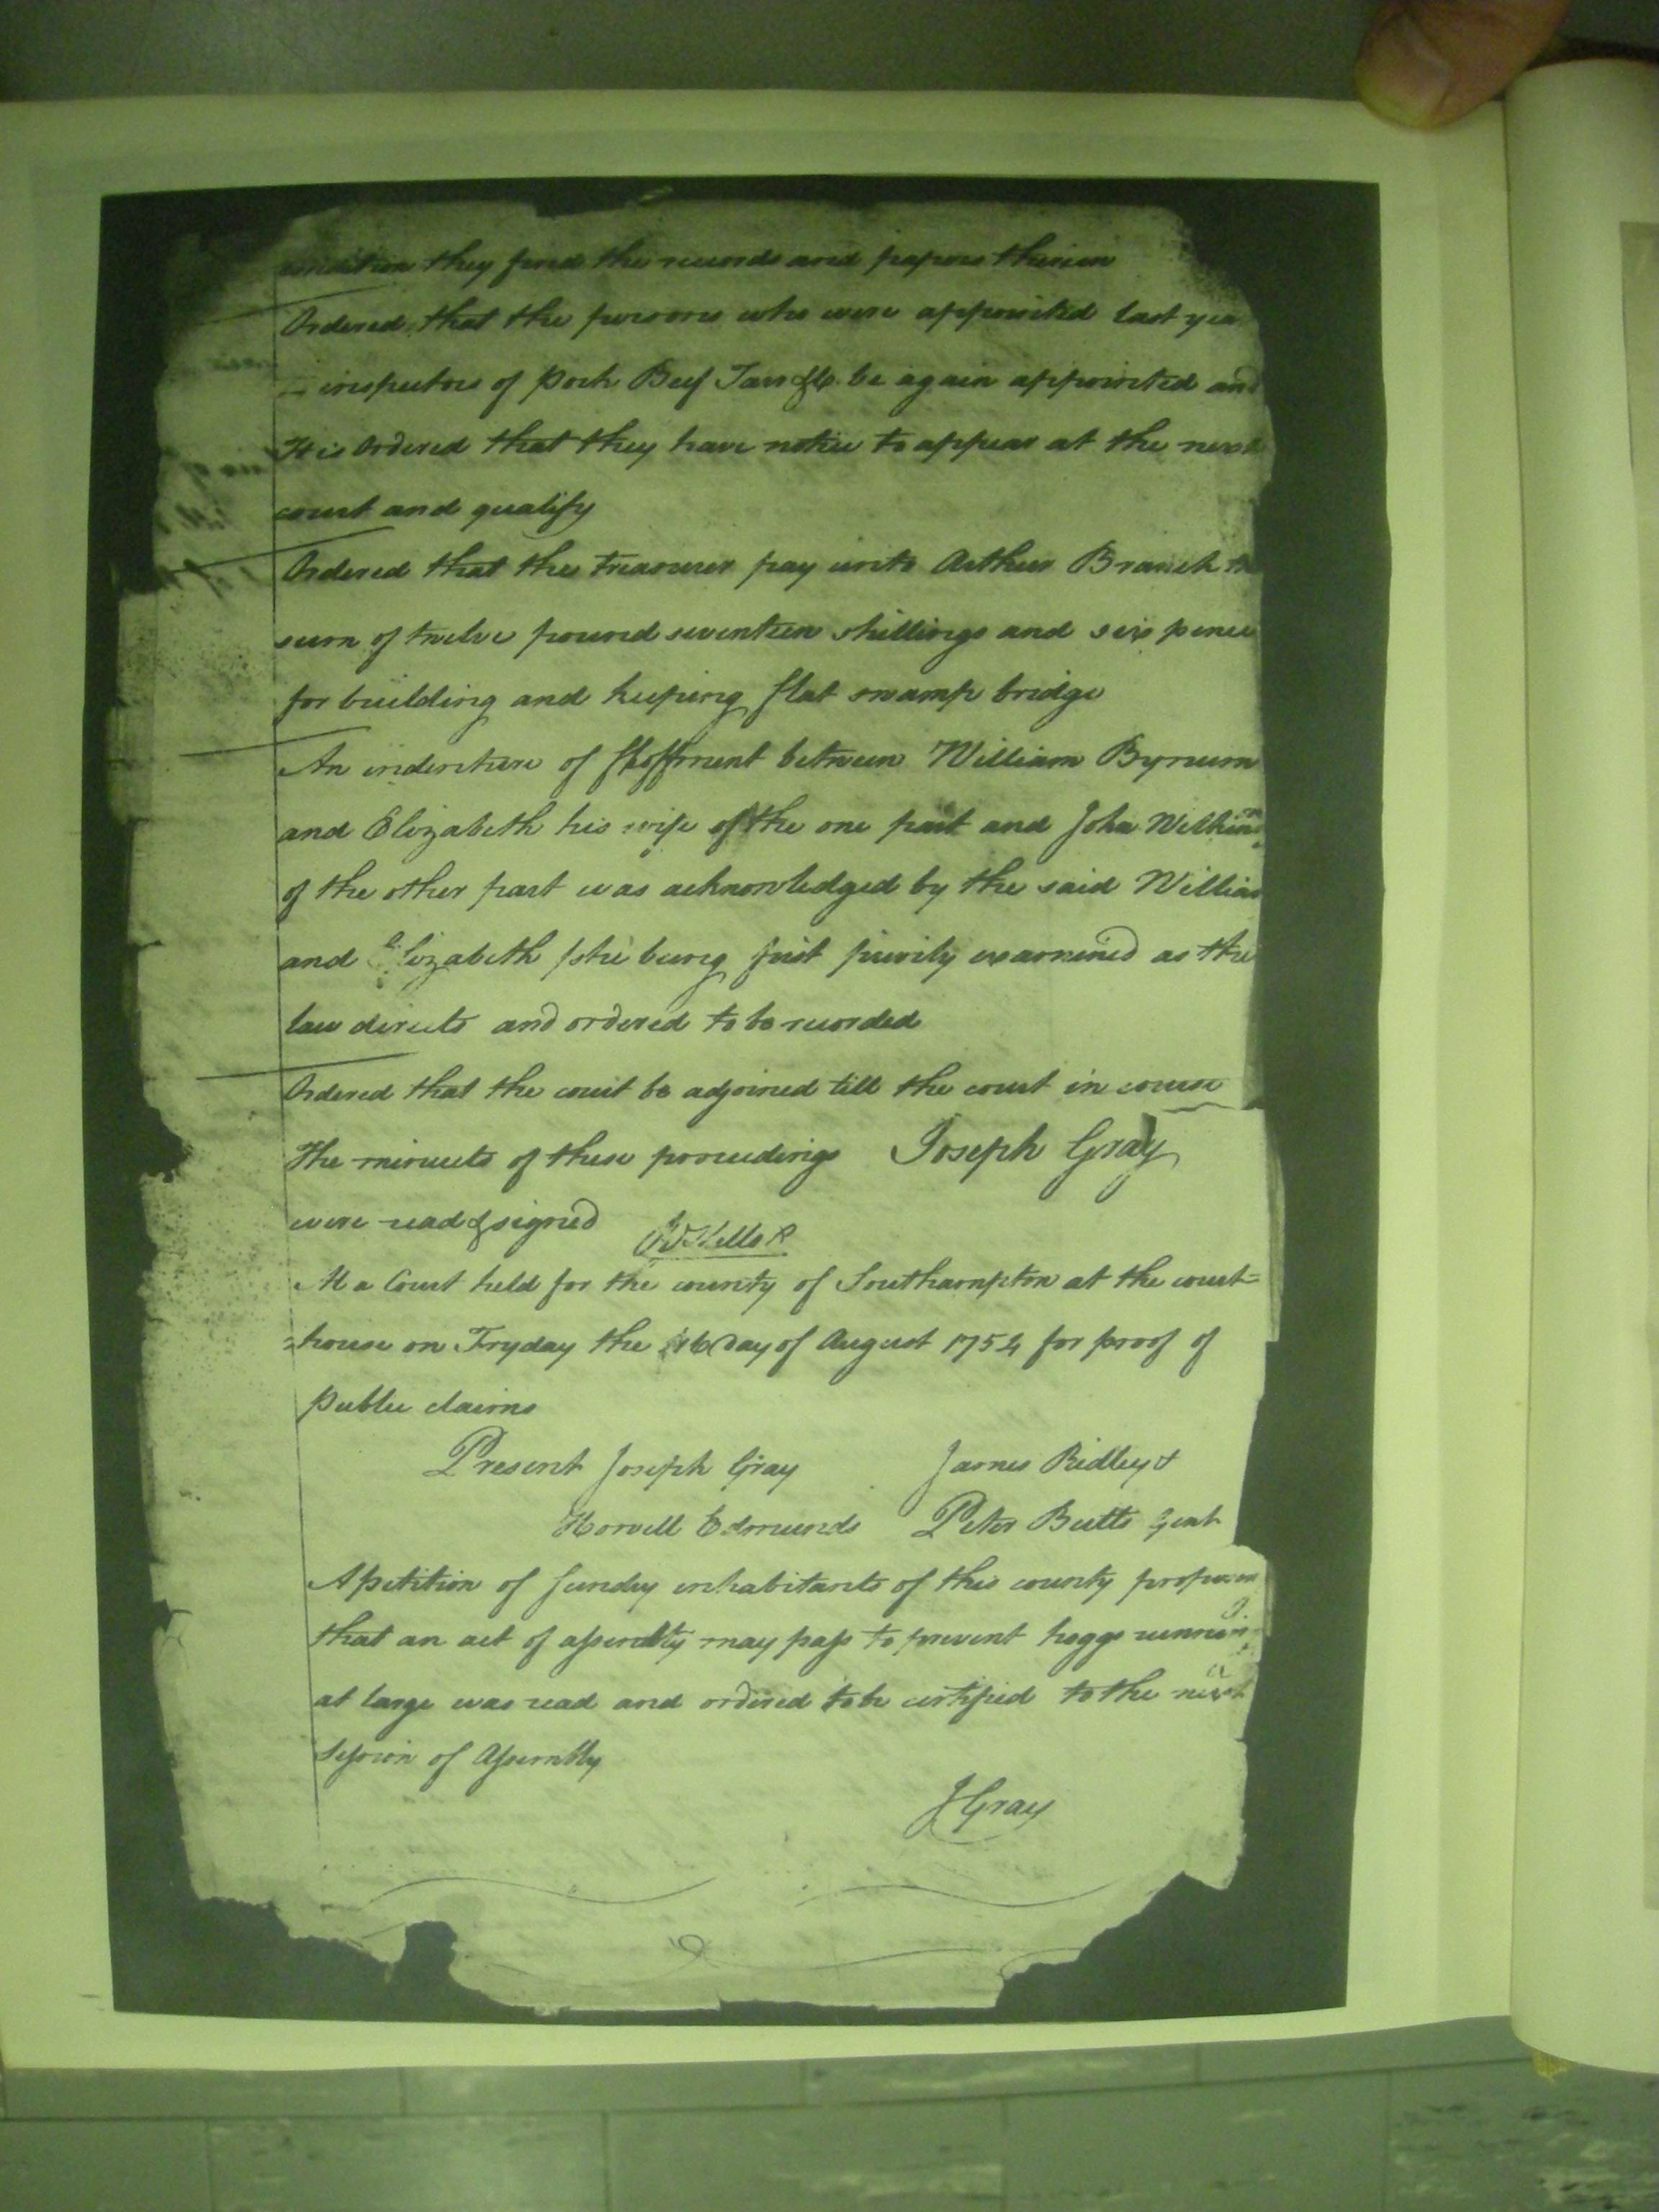 condition they find the records and papers therein
Ordered that the persons who were appointed last yea
inspectors of Pork Beef Tarr &c be again appointed and
It is Ordered that they have notice to appear at the next
court and qualify
Ordered that the treasurer pay unto Arthur Branch the
sum of twelve pound seventeen shillings and six pence
for building and keeping flat swamp bridge
An indenture of ffeoffment between William Bynum
and Elizabeth his wife of the one part and John Wilkin
of the other part was acknowledged by the said William
and Elizabeth she being first privily examined as the
law directs and ordered to be recorded
Ordered that the court be adjoined till the court in course
The minuets of these proceedings Joseph Gray
were read & signed
At a Court held for the county of Southampton at the court=
=house on Fryday the 16 Day of August 1754 for proof of
Public claims
Present Joseph Gray James Ridley &
Howell Edmunds Peter Butts Gent
A petition of sundry inhabitants of this county
that an act of assembly may pass to prevent hoggs running
at large was read and ordered to be certified to the next
Session of Assembly
J Gray